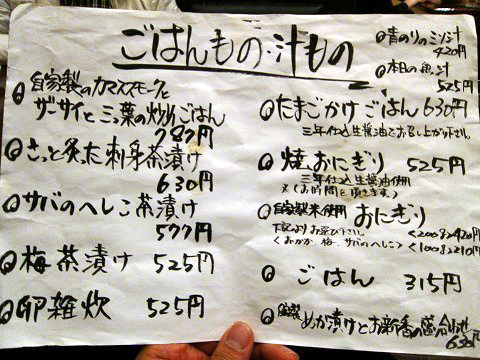 ごはんもの・汁もの
自家製のカマススモークと
ザーサイと三つ葉の炒めごはん
787円
さっと炙った刺身茶漬け
630円
サバのへしこ茶漬け
577円
梅茶漬け 525円
卵雑炊 525円
青のりのミソ汁
420円
本日の魚汁
525円
たまごかけごはん 630円
三年仕込生醤油でお召し上がり下さい。
焼おにぎり 525円
三年仕込生醤油使用
※(お時間を頂きます。)
自家製米使用 おにぎり
下記よりお選び下さい。 <2コ>420円
<おかか、梅、サバのへしこ> <1コ>210円
ごはん 315円
めか漬けとお新香の盛合せ
630円